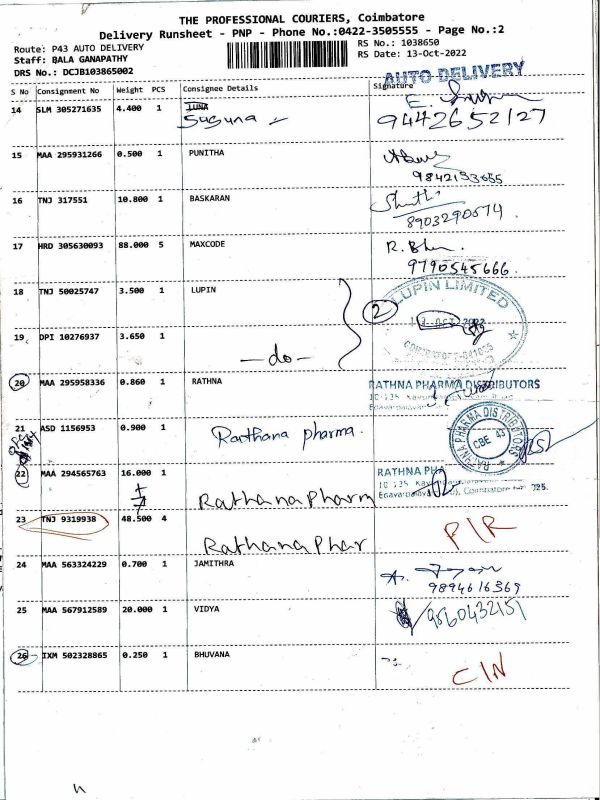 THE PROFESSIONAL COURIERS, Coimbatore
Delivery Runsheet - PNP - Phone No.:0422-3505555 - Page No.:2
Route: P43 AUTO DELIVERY
RS No.: 1038650
Staff: BALA GANAPATHY
RS Date: 13-Oct-2022
DRS No.: DCJB103865002
AUTO DELIVERY
S No Consignment No Weight PCS Consignee Details Signature
14 SLM 305271635 4.400 1 LUNA
Suguna
9442652127
15 MAA 295931266 0.500 1 PUNITHA
9842193655
16 TNJ 317551 10.800 1 BASKARAN
8903290574
17 HRD 305630093 88.000 5 MAXCODE
9790545666
18 TNJ 50025747 3.500 1 LUPIN
2
LUPIN LIMITED
19 DPI 10276937 3.650 1
-do-
20 MAA 295958336 0.860 1 RATHNA
RATHNA PHARMA DISTRIBUTORS
21 ASD 1156953 0.900 1
Rathana pharma.
RATHNA PHARMA DISTRIBUTORS
CBE 43
22 MAA 294565763 16.000 1
RATHNA PHA
Rathana Pharm
23 TNJ 9319938 48.500 4
Rathana Phar
P/R
24 MAA 563324229 0.700 1 JAMITHRA
9894616369
25 MAA 567912589 20.000 1 VIDYA
9560432151
26 IXM 502328865 0.250 1 BHUVANA
C/N